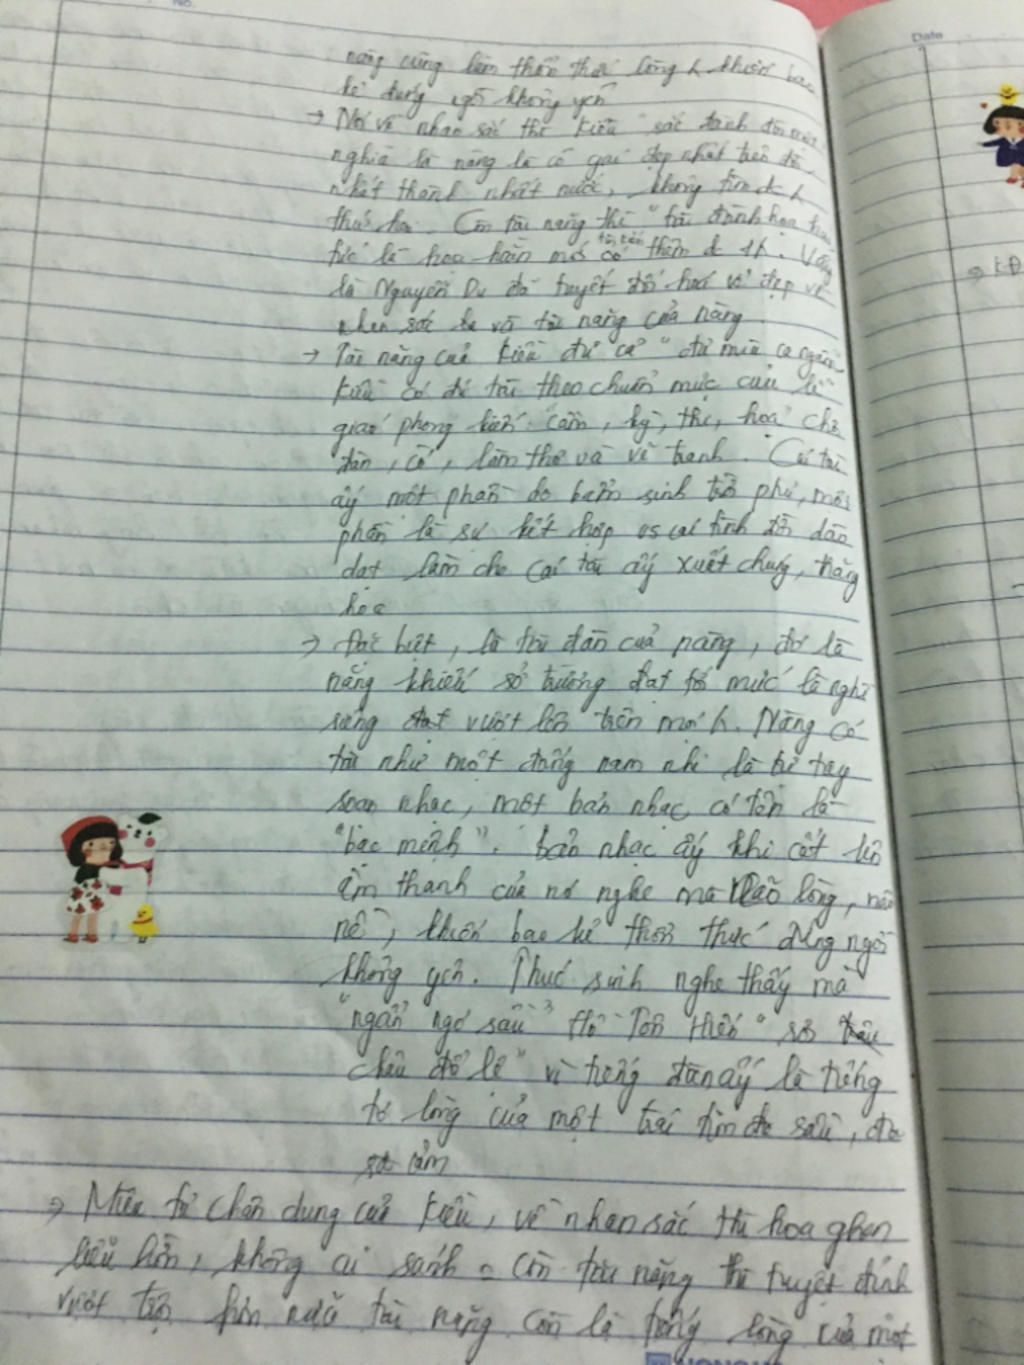 No.
Date
nàng cũng làm thổn thức lòng k khiến bao
kẻ đứng ngồi không yên
→ Nói về nhan sắc thì Kiều "sắc đành đòi một
nghĩa là nàng là cô gái đẹp nhất trên đời,
nhất thành nhất nước, không tìm đc k
thứ hai. Còn tài năng thì "tài đành hoạ hai
tức là hoạ hoằn mới có thêm đc 1k. Vậy
là Nguyễn Du đã tuyệt đối hoá vẻ đẹp về
nhan sắc và tài năng của nàng
→ Tài năng của Kiều đủ cả "đủ mùi ca ngâm
Kiều có đủ tài theo chuẩn mực của lễ
giáo phong kiến: cầm, kỳ, thi, hoạ
đàn, cờ, làm thơ và vẽ tranh. Cái tài
ấy một phần do bẩm sinh trời phú, một
phần là sự kết hợp vs cái tình dồi dào
dạt làm cho cái tài ấy xuất chúng,
→ Đặc biệt, là tài đàn của nàng, đó là
năng khiếu sở trường đạt tới mức là nghề
riêng đạt vượt lên trên mọi k. Nàng có
tài như một đấng nam nhi là tự tay
soạn nhạc, một bản nhạc có tên là
"bạc mệnh". bản nhạc ấy khi cất lên
âm thanh của nó nghe mà não lòng, não
nề, khiến bao kẻ thổn thức đứng ngồi
không yên. Thúc sinh nghe thấy mà
"ngẩn ngơ sầu" Hồ Tôn Hiến
châu đổ lệ" vì tiếng đàn ấy là tiếng
tơ lòng của một trái tim đa sầu, đa
cảm
→ Miêu tả chân dung của Kiều, về nhan sắc thì hoa ghen
liễu hờn, không ai sánh = còn tài năng thì tuyệt đỉnh
vượt trội hơn nữa tài năng còn là tiếng lòng của một